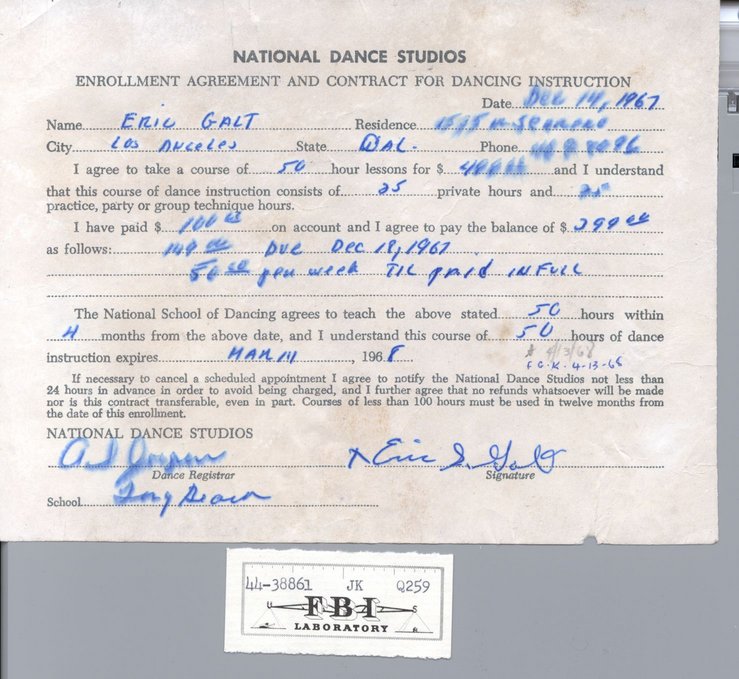 NATIONAL DANCE STUDIOS
ENROLLMENT AGREEMENT AND CONTRACT FOR DANCING INSTRUCTION
Date Dec 14, 1967
Name ERIC GALT Residence
City LOS ANGELES State CAL. Phone
I agree to take a course of 50 hour lessons for $ and I understand
that this course of dance instruction consists of 25 private hours and 25
practice, party or group technique hours.
I have paid $ 100 00 on account and I agree to pay the balance of $ 399 00
as follows: 149 00 Due Dec 18, 1967
50 00 per week TIL paid IN FULL
The National School of Dancing agrees to teach the above stated 50 hours within
4 months from the above date, and I understand this course of 50 hours of dance
instruction expires MAR 14, 1968
4/3/68
4-13-68
If necessary to cancel a scheduled appointment I agree to notify the National Dance Studios not less than
24 hours in advance in order to avoid being charged, and I further agree that no refunds whatsoever will be made
nor is this contract transferable, even in part. Courses of less than 100 hours must be used in twelve months from
the date of this enrollment.
NATIONAL DANCE STUDIOS
x Eric S. Galt
Dance Registrar Signature
School Long Beach
44-38861 JK Q259
U S
FBI
LABORATORY